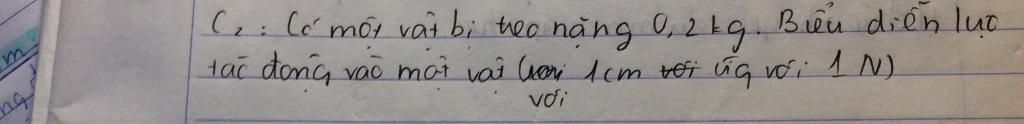 C2: Có một vật bị treo nặng 0,2kg. Biểu diễn lực
tác động vào một vật ( 1cm ứg với 1 N)
với